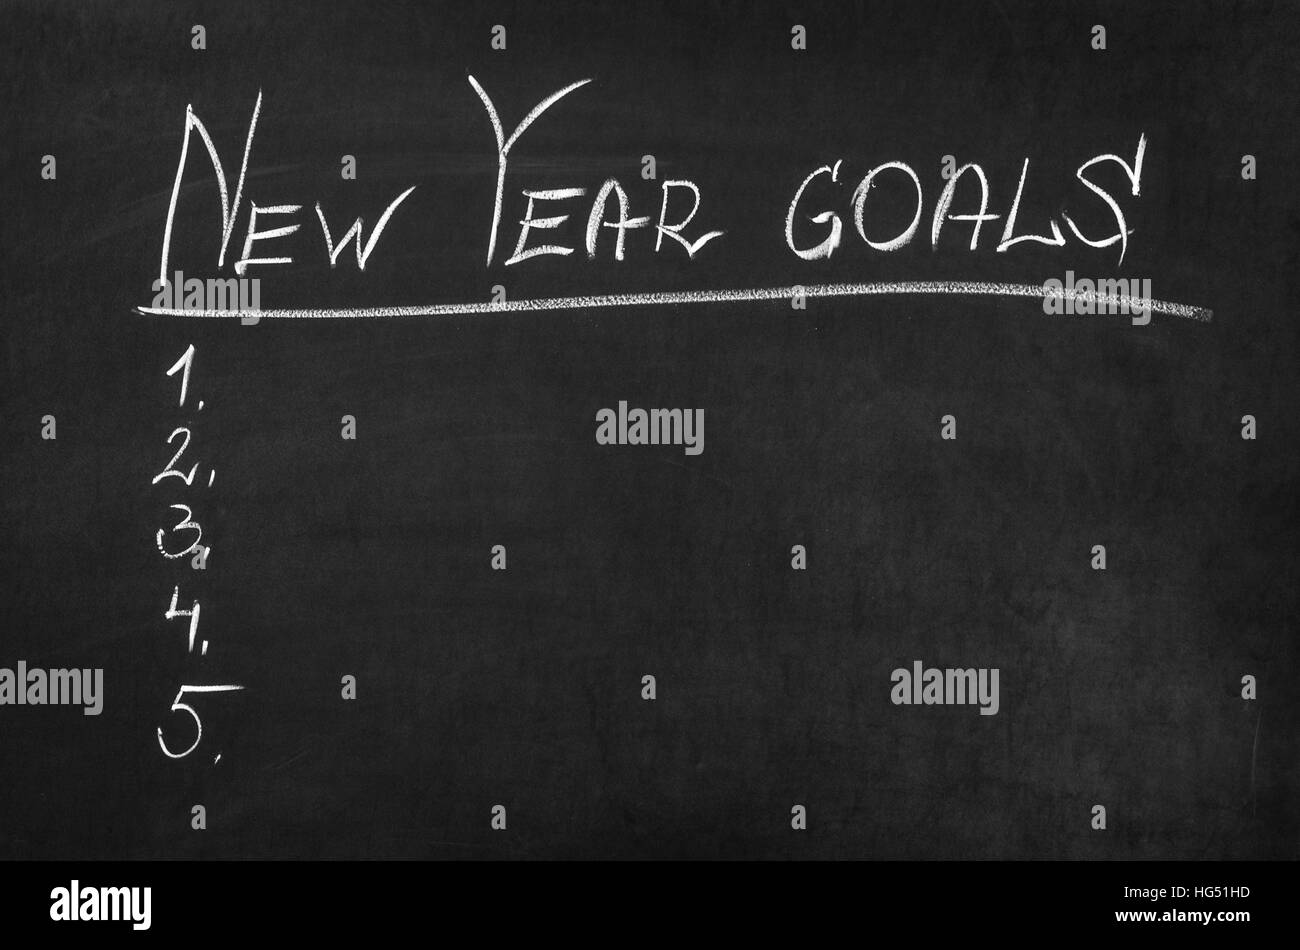 NEW YEAR GOALS
1.
2.
3.
4.
5.
alamy
a
alamy
Image ID: HG51HD
www.alamy.com